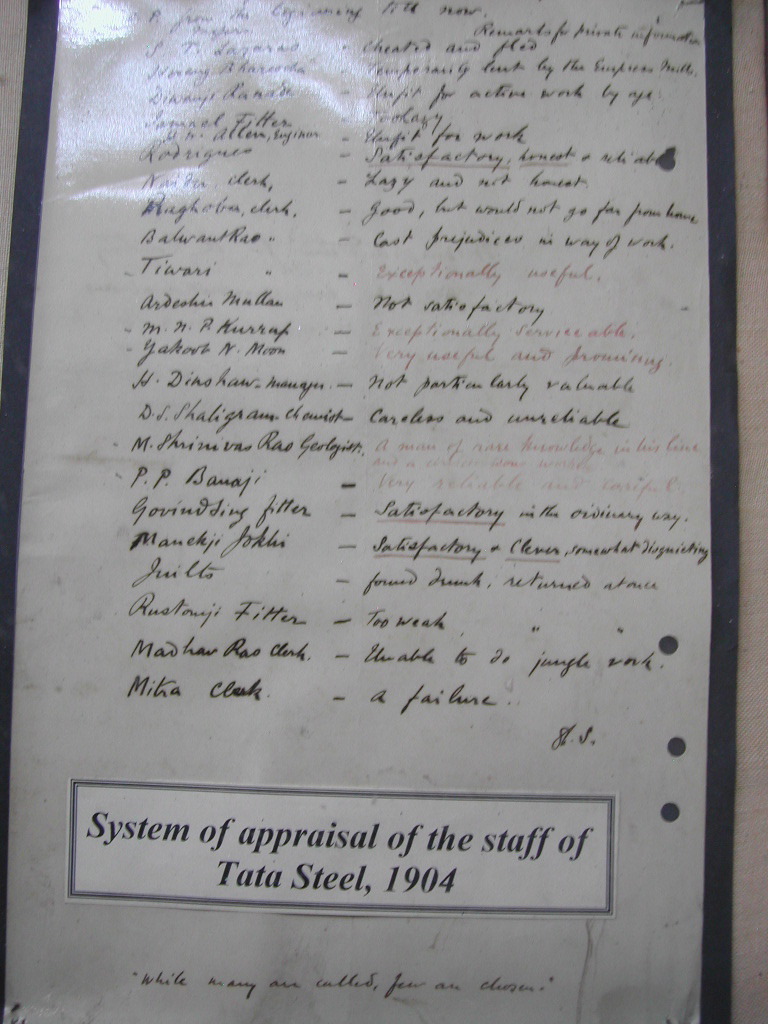 P. from the beginning till now.
Remarks for private information
S. T. Lazarus - Cheated and fled
Temporarily lent by the Empress Mills.
Ranade - Unfit for active work by age
Samuel Fitter - Too lazy
Allen, Engineer - Unfit for work
Rodrigues - Satisfactory, honest & reliable
clerk, - Lazy and not honest
Raghoba, clerk, - Good, but would not go far from home
Balwant Rao " - Cast prejudices in way of work.
Tiwari " - Exceptionally useful.
Ardeshir Mullan - Not satisfactory
M. N. P. - Exceptionally serviceable.
Yakoob N. Moon - Very useful and promising.
H. Dinshaw - manager. - Not particularly valuable
D. S. Shaligram Chemist - Careless and unreliable
M. Shrinivas Rao Geologist, A man of rare knowledge in his line
and a
P. P. Banaji - Very reliable and careful
Govind Sing fitter - Satisfactory in the ordinary way.
Manekji - Satisfactory & Clever, somewhat disquieting
- found drunk, returned at once
Rustomji Fitter - Too weak " "
Madhav Rao clerk. - Unable to do jungle work.
Mitra clerk. - A failure.
System of appraisal of the staff of
Tata Steel, 1904
"While many are called, few are chosen."